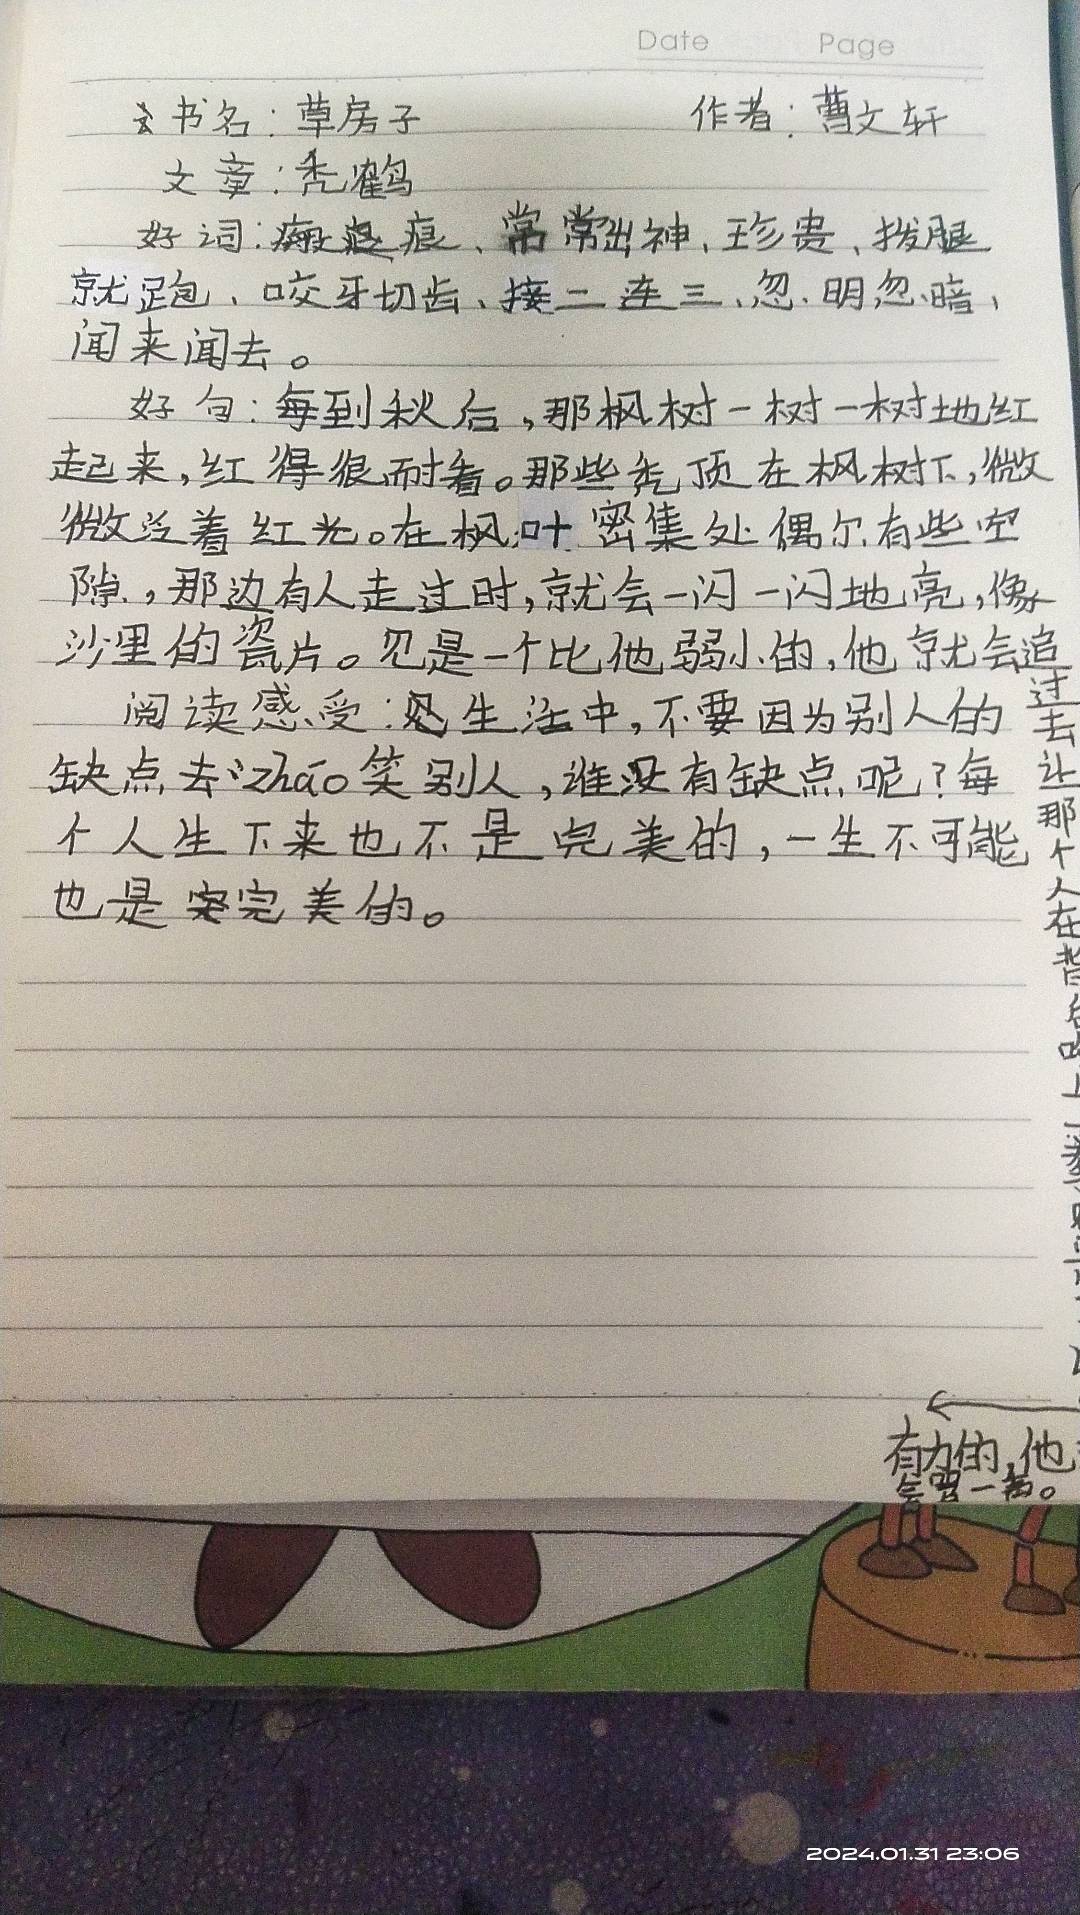 Date Page
书名：草房子 作者：曹文轩
文章：秃鹤
好词：痕、常常出神、珍贵、拨腿
就跑、咬牙切齿、接二连三、忽明忽暗、
闻来闻去。
好句：每到秋后，那枫树一树一树地红
起来，红得很耐看。那些秃顶在枫树下，微
微泛着红光。在枫叶密集处偶尔有些空
隙，那边有人走过时，就会一闪一闪地亮，像
沙里的瓷片。见是一个比他弱小的，他就会追
过去让那个人在背后吃上
有力的，他
会骂一句。
阅读感受：生活中，不要因为别人的
缺点去zhāo笑别人，谁没有缺点呢？每
个人生下来也不是完美的，一生不可能
也是完美的。
2024.01.31 23:06